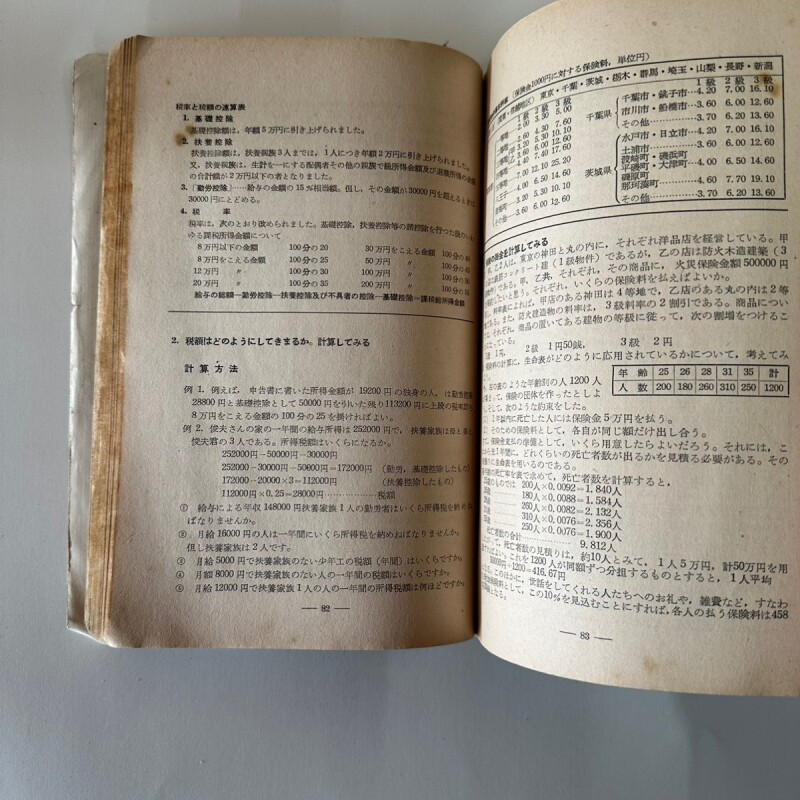 税率と税額の速算表
1. 基礎控除
基礎控除額は，年額5万円に引き上げられました。
2. 扶養控除
扶養控除額は，扶養親族3人までは，1人につき年額2万円に引き上げられました。
又，扶養親族は，生計を一にする配偶者その他の親族で総所得金額及び退職所得の金額
の合計額が2万円以下の者となりました。
3.「勤労控除」……給与の金額の15％相当額。但し，その金額が30000円を超えるときは
30000円にとどめる。
4. 税　率
税率は，次のとおり改められました。基礎控除，扶養控除等の諸控除を行つた後のいわ
ゆる課税所得金額について
8万円以下の金額　100分の20　30万円をこえる金額　100分の
8万円をこえる金額　100分の25　50万円　〃　100分の
12万円　〃　100分の30　100万円　〃　100分の
20万円　〃　100分の35　200万円　〃　100分の
給与の総額―勤労控除―扶養控除及び不具者の控除―基礎控除＝課税総所得金額
2. 税額はどのようにしてきまるか。計算してみる
計算方法
例 1. 例えば，申告書に書いた所得金額が 19200円の独身の人，は勤労控除
28800円と基礎控除として50000円を引いた残り113200円に上段の税率
8万円をこえる金額の100分の25を掛ければよい。
例 2. 俊夫さんの家の一年間の給与所得は252000円で，扶養家族は母と
俊夫君の3人である。所得税額はいくらになるか。
252000円－50000円－30000円
252000－30000円－50000円＝172000円（勤労，基礎控除したもの）
172000－20000×3＝112000円　（扶養控除したもの）
112000円×0.25＝28000円……………税額
① 給与による年収148000円扶養家族1人の勤労者はいくら所得税を納めね
ばなりませんか。
② 月給16000円の人は一年間にいくら所得税を納めねばなりませんか。
但し扶養家族は2人です。
③ 月給5000円で扶養家族のない少年工の税額（年間）はいくらですか。
④ 月額8000円で扶養家族のない人の一年間の税額はいくらですか。
⑤ 月給12000円で扶養家族1人の人の一年間の所得税額は何ほどですか。
― 82 ―
（保険金1000円に対する保険料，単位円）
東京・千葉・茨城・栃木・群馬・埼玉・山梨・長野・新潟
1級　2級　3級　1級　2級　3級
2.00　3.30　5.00　千葉県　千葉市・銚子市……4.20　7.00　16.10
2.60　4.30　7.60　市川市・船橋市……3.60　6.00　12.60
3.20　5.30　10.10　その他……3.70　6.20　13.60
4.40　7.40　17.60　茨城県　水戸市・日立市……4.20　7.00　16.10
7.00　12.10　25.20　土浦市……3.60　6.00　12.60
4.20　7.00　16.10　湊崎町・磯浜町
3.20　5.30　10.10　平磯町・大津町……4.00　6.50　14.60
3.60　6.00　12.60　磯原町
那珂湊町……4.60　7.70　19.10
その他……3.70　6.20　13.60
険の掛金を計算してみる
甲，乙2人は，東京の神田と丸の内に，それぞれ洋品店を経営している。甲
鉄筋コンクリート建（1級物件）であるが，乙の店は防火木造建築（3
である。甲，乙共，それぞれ，その商品に，火災保険金額500000円
たいと思う。それぞれ，いくらの保険料を払えばよいか。
料率表によれば，甲店のある神田は4等地で，乙店のある丸の内は2等
ある。また，防火建造物の料率は，3級料率の2割引である。商品につい
は，それぞれ，商品の置いてある建物の等級に従って，次の割増をつける
なっている。
1円，　2級　1円50銭，　3級　2円
保険料の計算に，生命表がどのように応用されているかについて，考えてみ
年齢　25　26　28　31　35　計
人数　200　180　260　310　250　1200
の表のような年齢別の人1200人
して，保険の団体を作ったとし
して，次のような約束をした。
1年以内に死亡した人には保険金5万円を払う。
そのための保険料として，各自が同じ額だけ出し合う。
保険金支払の準備として，いくら用意したらよいだろう。それには，こ
ら1年間に，どれくらいの死亡者数が出るかを見積る必要がある。その
めに生命表を用いるのである。
死亡率を表で求めて，死亡者数を計算すると，
のものでは　200人×0.0092＝1.840人
180人×0.0088＝1.584人
260人×0.0082＝2.132人
310人×0.0076＝2.356人
250人×0.0076＝1.900人
死亡者数の合計　9.812人
死亡者数の見積りは，約10人とみて，1人5万円，計50万円を用
よい。これを1200人が同額ずつ分担するものとすると，1人平均
500000円÷1200＝416.67円
る。このほかに，世話をしてくれる人たちへのお礼や，雑費など，すなわ
として，この10％を見込むことにすれば，各人の払う保険料は458
となる。
― 83 ―